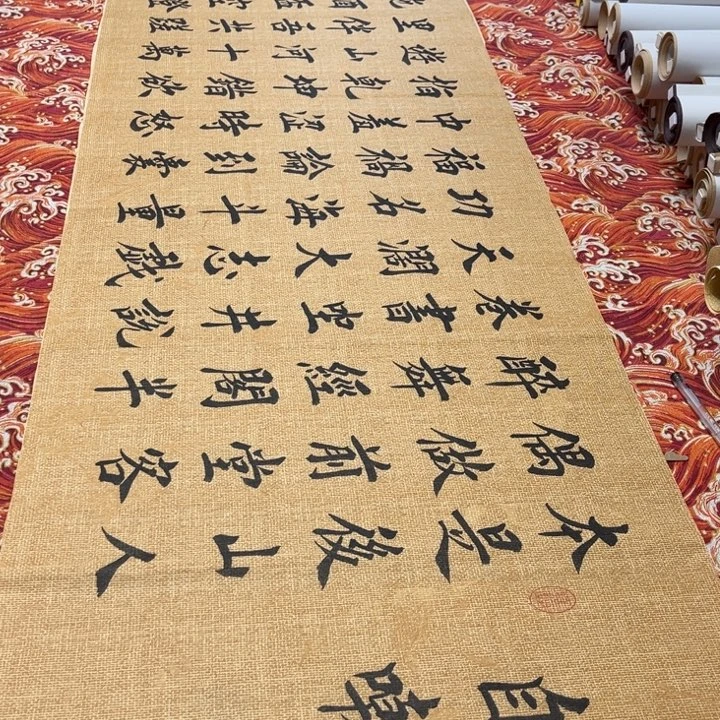 自嘲
本是後山人
偶做前堂客
醉舞經閣半
卷書坐井說
天闊大志戲
功名海斗量
福禍論到囊
中羞澀時怒
指乾坤錯欲
遊山河十萬
里伴吾共